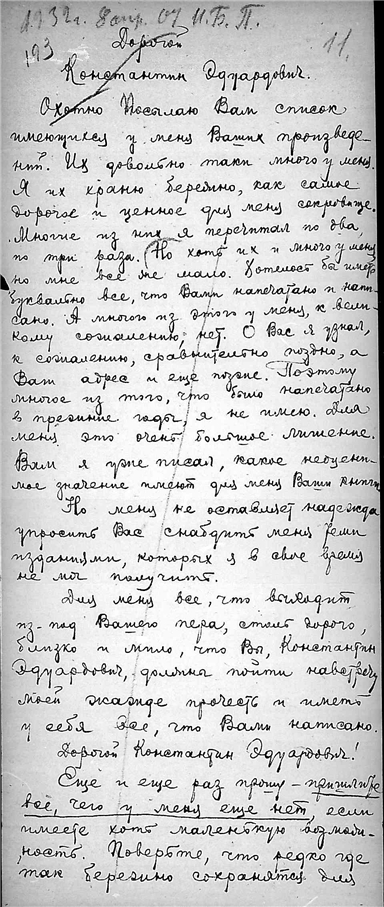 1932г. 8 апр. от И.Б.П.
193 11.
Дорогой
Константин Эдуардович.
Охотно посылаю Вам список
имеющихся у меня Ваших произведе-
ний. Их довольно таки много у меня.
Я их храню бережно, как самое
дорогое и ценное для меня сокровище.
Многие из них я перечитал по два,
по три раза. Но хоть их и много у меня
но мне все же мало. Хотелось бы иметь
буквально все, что Вами напечатано и напи-
сано. А многого из этого у меня, к вели-
кому сожалению, нет. О Вас я узнал,
к сожалению, сравнительно поздно, а
Ваш адрес и еще позже. Поэтому
многое из того, что было напечатано
в прежние годы, я не имею. Для
меня это очень большое лишение.
Вам я уже писал, какое неоцени-
мое значение имеют для меня Ваши книги.
Но меня не оставляет надежда
упросить Вас снабдить меня теми
изданиями, которых я в свое время
не мог получить.
Для меня все, что выходит
из-под Вашего пера, столь дорого,
близко и мило, что Вы, Константин
Эдуардович, должны пойти навстречу
моей жажде прочесть и иметь
у себя все, что Вами написано.
Дорогой Константин Эдуардович!
Еще и еще раз прошу - пришлите
все, чего у меня еще нет, если
имеете хоть маленькую возмож-
ность. Поверьте, что редко где
так бережно сохранятся для